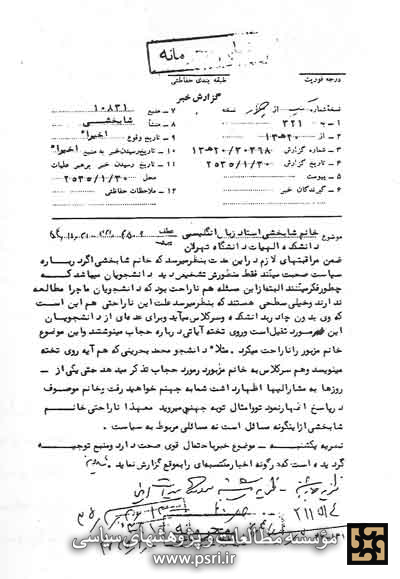 محرمانه
درجه فوریت
طبقه بندی حفاظتی
گزارش خبر
نسخه شماره از نسخه
۷ ـ منبع ۱۰۸۳۱
۱ ـ به ۳۲۱
۸ ـ منشأ شابخشی
۲ ـ از ۲۰هـ۱۳
۹ ـ تاریخ وقوع اخیراً
۳ ـ شماره گزارش ۲۰/۳۰۳۶۸هـ۱۳
۱۰ ـ تاریخ رسیدن خبر به منبع اخیراً
۴ ـ تاریخ گزارش ۲۵۳۵/۱/۳۰
۱۱ ـ تاریخ رسیدن خبر برهبر عملیات
۵ ـ پیوست
محل ۲۵۳۵/۱/۳۰
۶ ـ گیرندگان خبر
۱۲ ـ ملاحظات حفاظتی
موضوع خانم شابخشی استاد زبان انگلیسی
دانشکده الهیات دانشگاه تهران
ضمن مراقبتهای لازم در این مدت بنظر میرسد که خانم شابخشی اگر درباره
سیاست صحبت میکند فقط منظورش تشخیص دید دانشجویان میباشد که
چطور فکر میکنند البته از این مسئله هم ناراحت بود که دانشجویان ما چرا مطالعه
ندارند وخیلی سطحی هستند که بنظر میرسد علت این ناراحتی هم این است
که وی بدون چادر بدانشکده وسرکلاس میآید وبرای عده ای از دانشجویان
این مورد ثقیل است وروی تخته آیاتی درباره حجاب مینوشتند واین موضوع
خانم مزبور را ناراحت میکرد. مثلاً دانشجو محمد بحرینی که هم آیه روی تخته
مینویسد وهم سرکلاس به خانم مزبور درمورد حجاب تذکر میدهد حتی یکی از ـ
روزها به مشارالیها اظهار داشت شما به جهنم خواهید رفت وخانم موصوف
در پاسخ اظهار نمود تو و امثال تو به جهنم میروید معهذا ناراحتی خانم
شابخشی از اینگونه مسائل است نه مسائلی مربوط به سیاست.
نظریه یکشنبه ـ موضوع خبر باحتمال قوی صحت دارد ومنبع توجیه
گردیده است که هرگونه اخبار مکتسبه ای را بموقع گزارش نماید.
مؤسسه مطالعات و پژوهشهای سیاسی
www.psri.ir